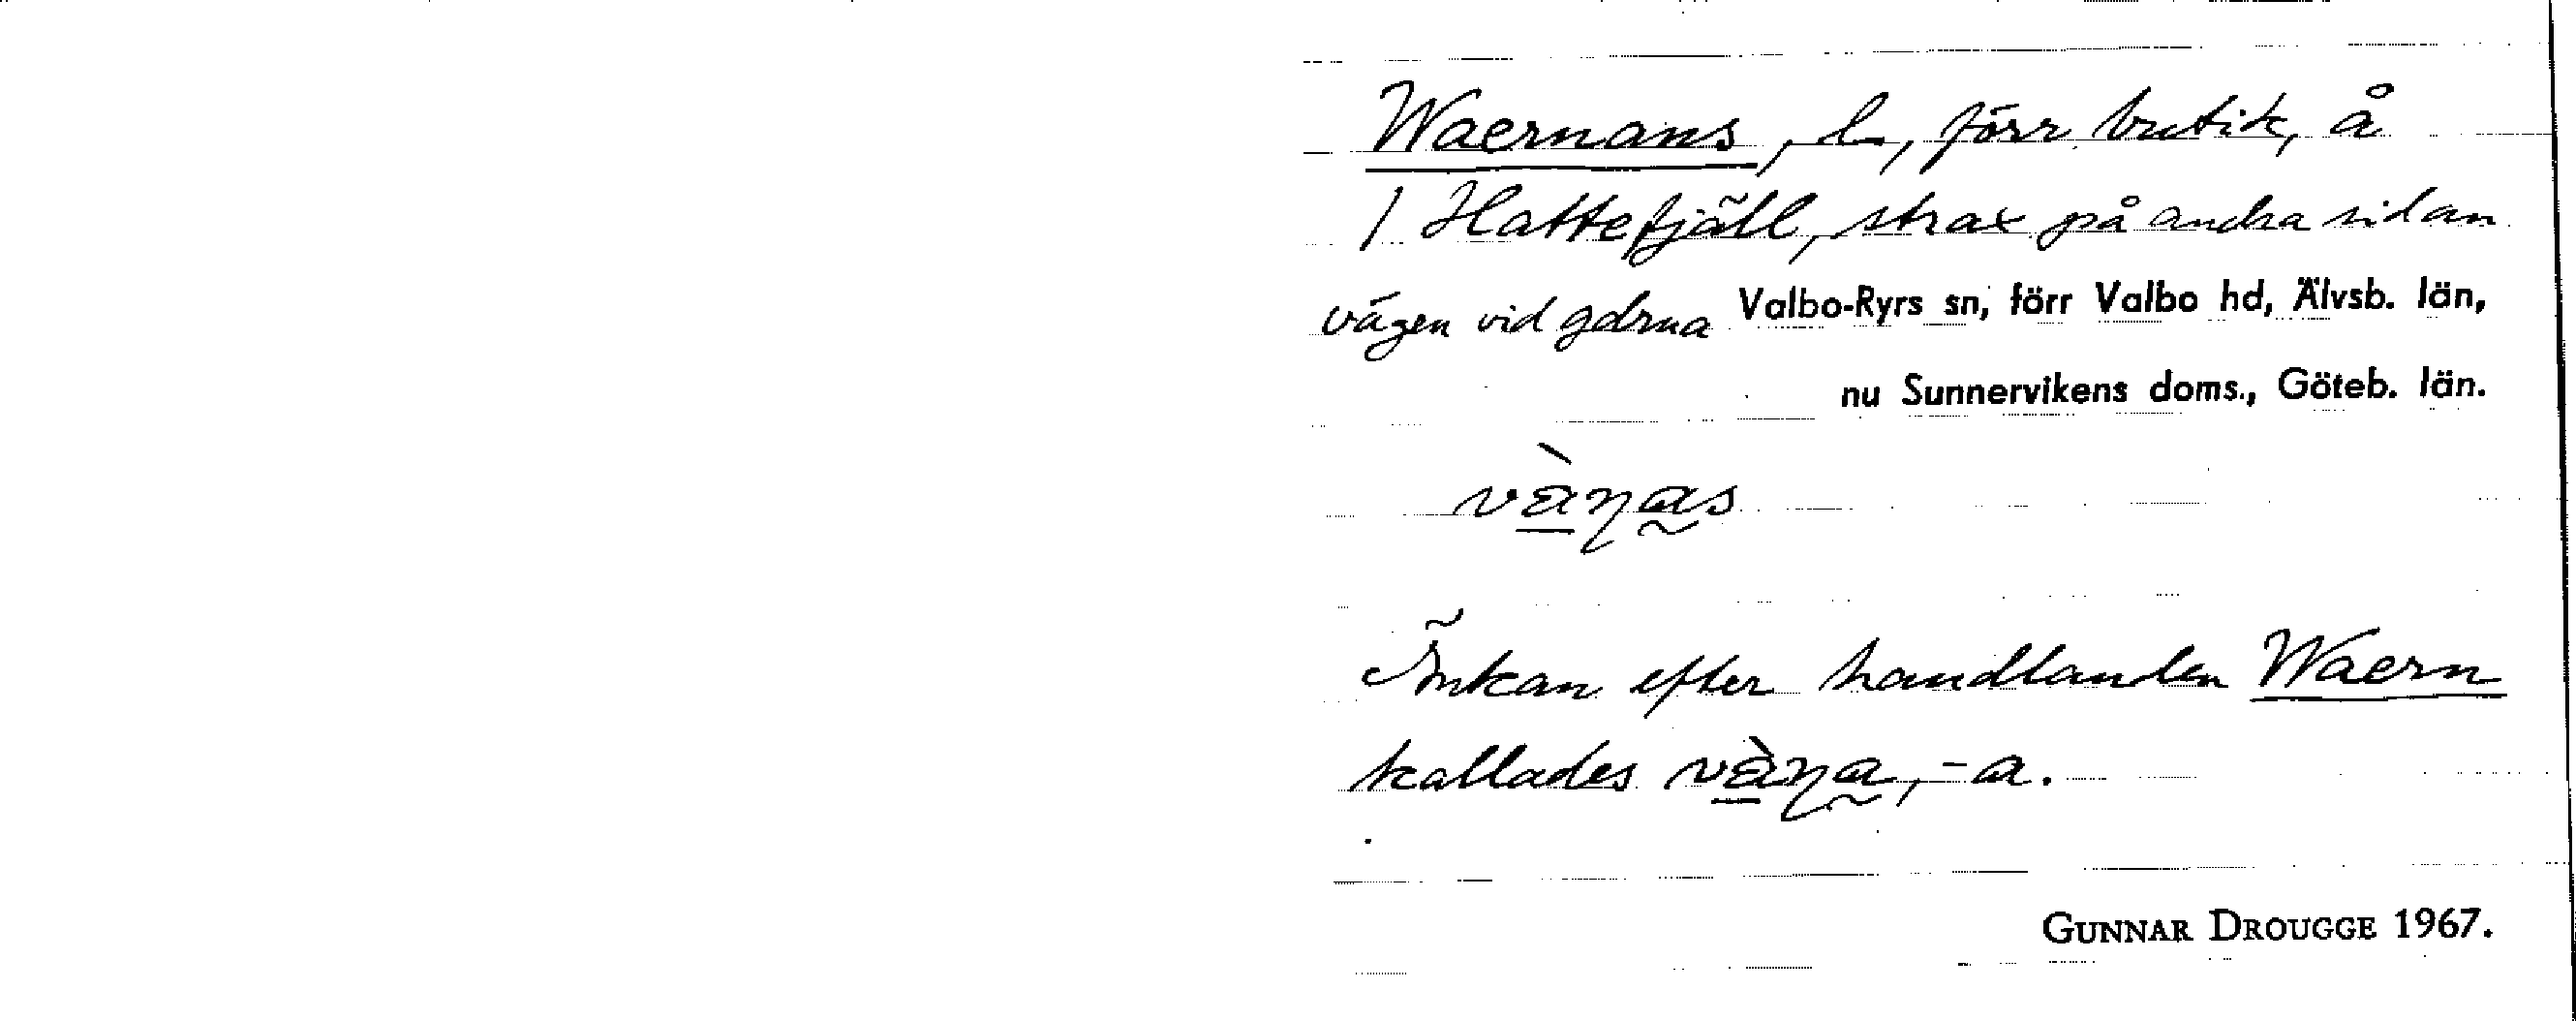 Waernans, l, förr butik, å
/ Hattefjäll, strax på andra sidan
vägen vid gdrna Valbo-Ryrs sn, förr Valbo hd, Älvsb. län,
nu Sunnervikens doms., Göteb. län.
vànas
Änkan efter handlanden Waern
kallades vàna, -a.
GUNNAR DROUGGE 1967.